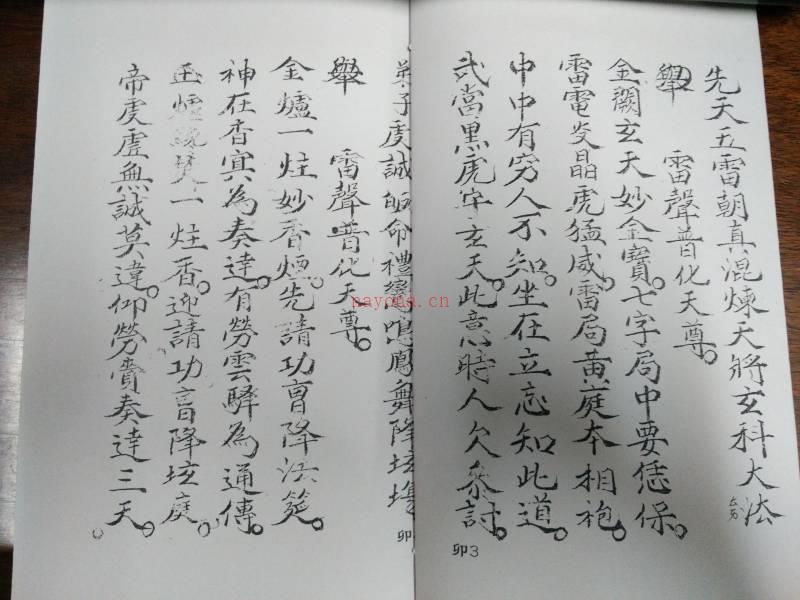 先天五雷朝真混煉天將玄科大法
舉 雷聲普化天尊。
金闕玄天妙金寶。七字局中要恁保。
雷電发晶虎猛威。雷局黃庭本相袍。
中中有穷人不知。坐在立忘知此道。
武當黑虎牢玄天。此意時人欠參討。
卯3
弟子虔誠皈命禮鸞鳴鳳舞降坛場
卯
舉 雷聲普化天尊。
金爐一炷妙香煙。先請功曹降法筵。
神在香寅為奏達。有勞雲驛為通傳。
玉爐一炷香。迎請功曹降坛庭。
帝虔虛無誠莫違。仰勞賫奏達三天。
nayona.cn